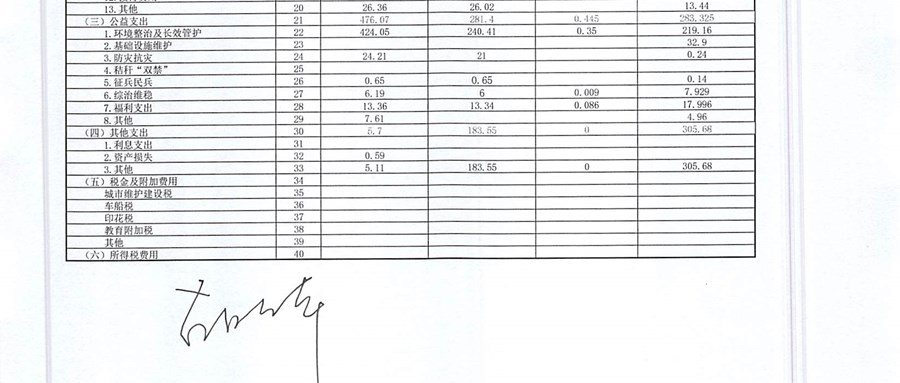 13.其他 20 26.36 26.02 13.44
（三）公益支出 21 476.07 281.4 0.445 283.325
1.环境整治及长效管护 22 424.05 240.41 0.35 219.16
2.基础设施维护 23 32.9
3.防灾抗灾 24 24.21 21 0.24
4.秸秆“双禁” 25
5.征兵民兵 26 0.65 0.65 0.14
6.综治维稳 27 6.19 6 0.009 7.929
7.福利支出 28 13.36 13.34 0.086 17.996
8.其他 29 7.61 4.96
（四）其他支出 30 5.7 183.55 0 305.68
1.利息支出 31
2.资产损失 32 0.59
3.其他 33 5.11 183.55 0 305.68
（五）税金及附加费用 34
城市维护建设税 35
车船税 36
印花税 37
教育附加税 38
其他 39
（六）所得税费用 40